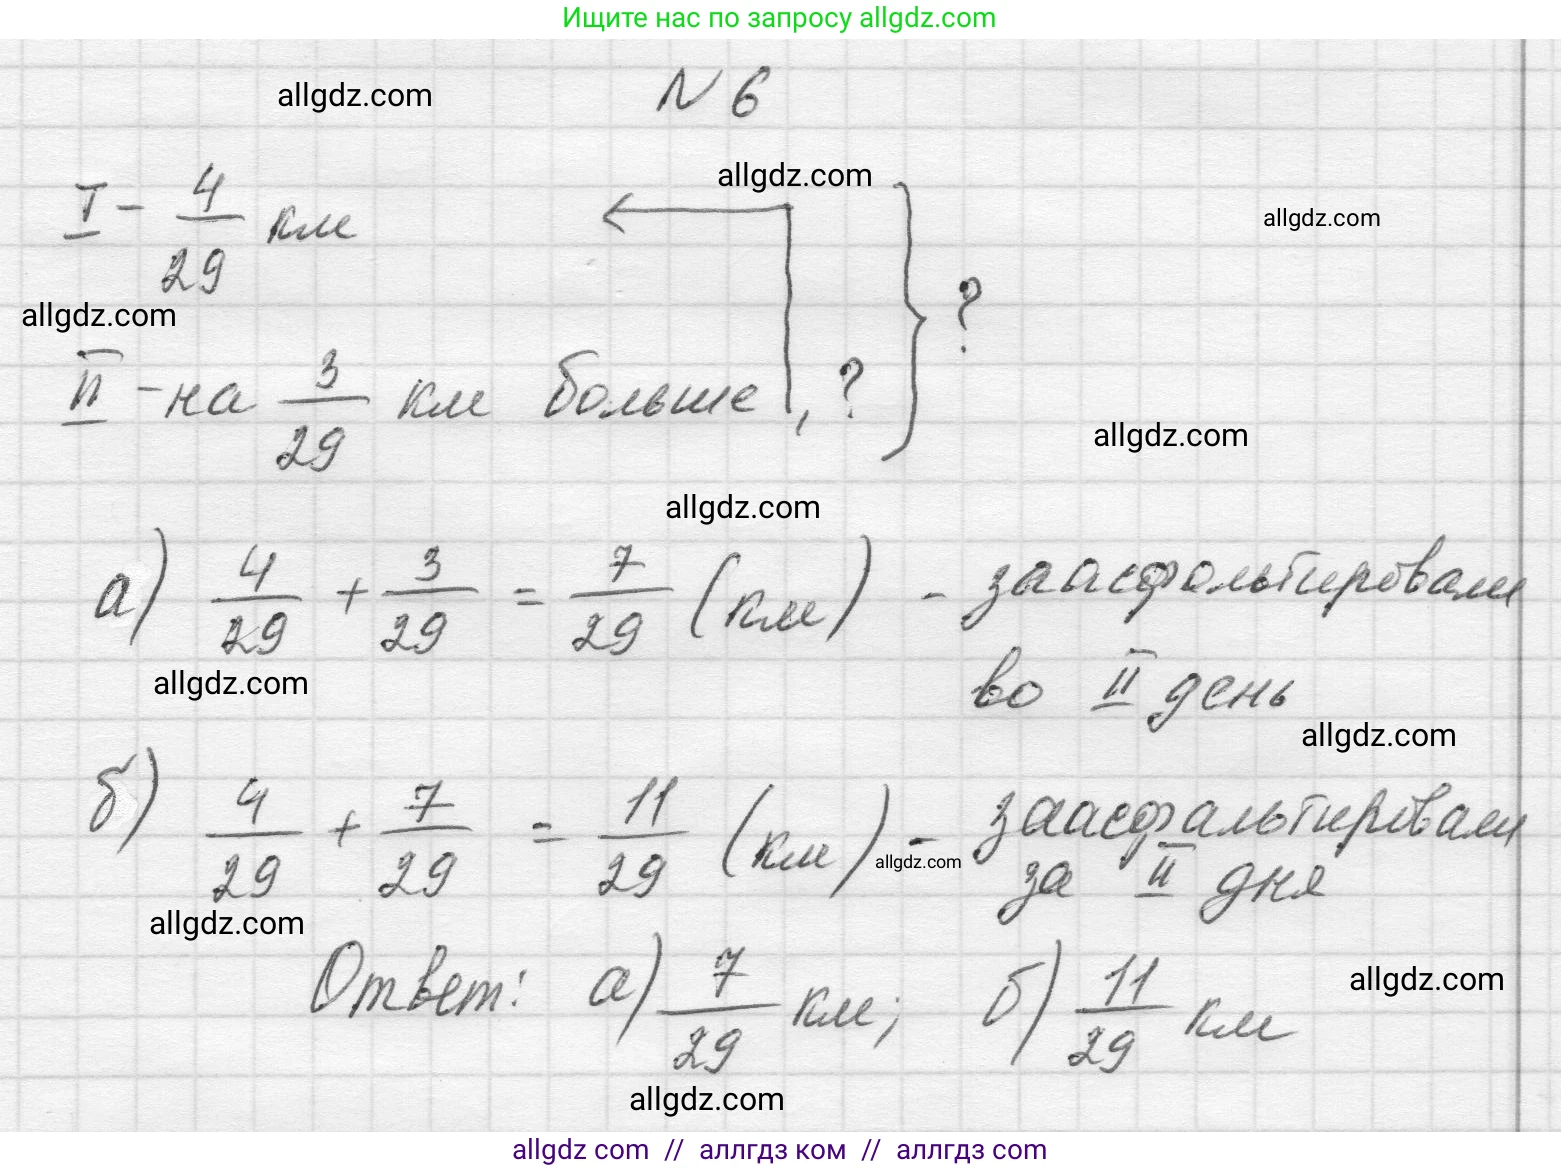 Ищите нас по запросу allgdz.com
allgdz.com
N 6
allgdz.com
I - 4/29 км
allgdz.com
allgdz.com
?
II - на 3/29 км больше, ?
allgdz.com
allgdz.com
а) 4/29 + 3/29 = 7/29 (км) - заасфальтировали
во II день
allgdz.com
allgdz.com
б) 4/29 + 7/29 = 11/29 (км) - заасфальтировали
allgdz.com
за II дня
allgdz.com
Ответ: а) 7/29 км; б) 11/29 км
allgdz.com
allgdz.com
allgdz.com // аллгдз ком // allgdz.com